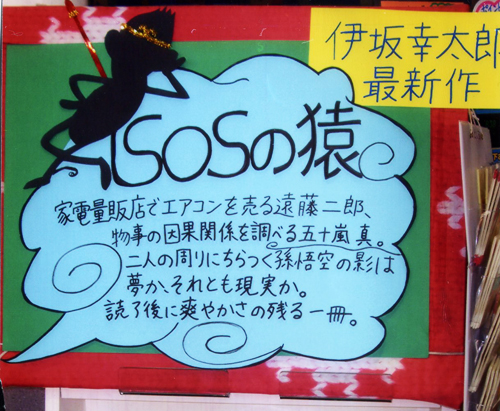 伊坂幸太郎
最新作
SOSの猿
家電量販店でエアコンを売る遠藤二郎、
物事の因果関係を調べる五十嵐真。
二人の周りにちらつく孫悟空の影は
夢か、それとも現実か。
読了後に爽やかさの残る一冊。